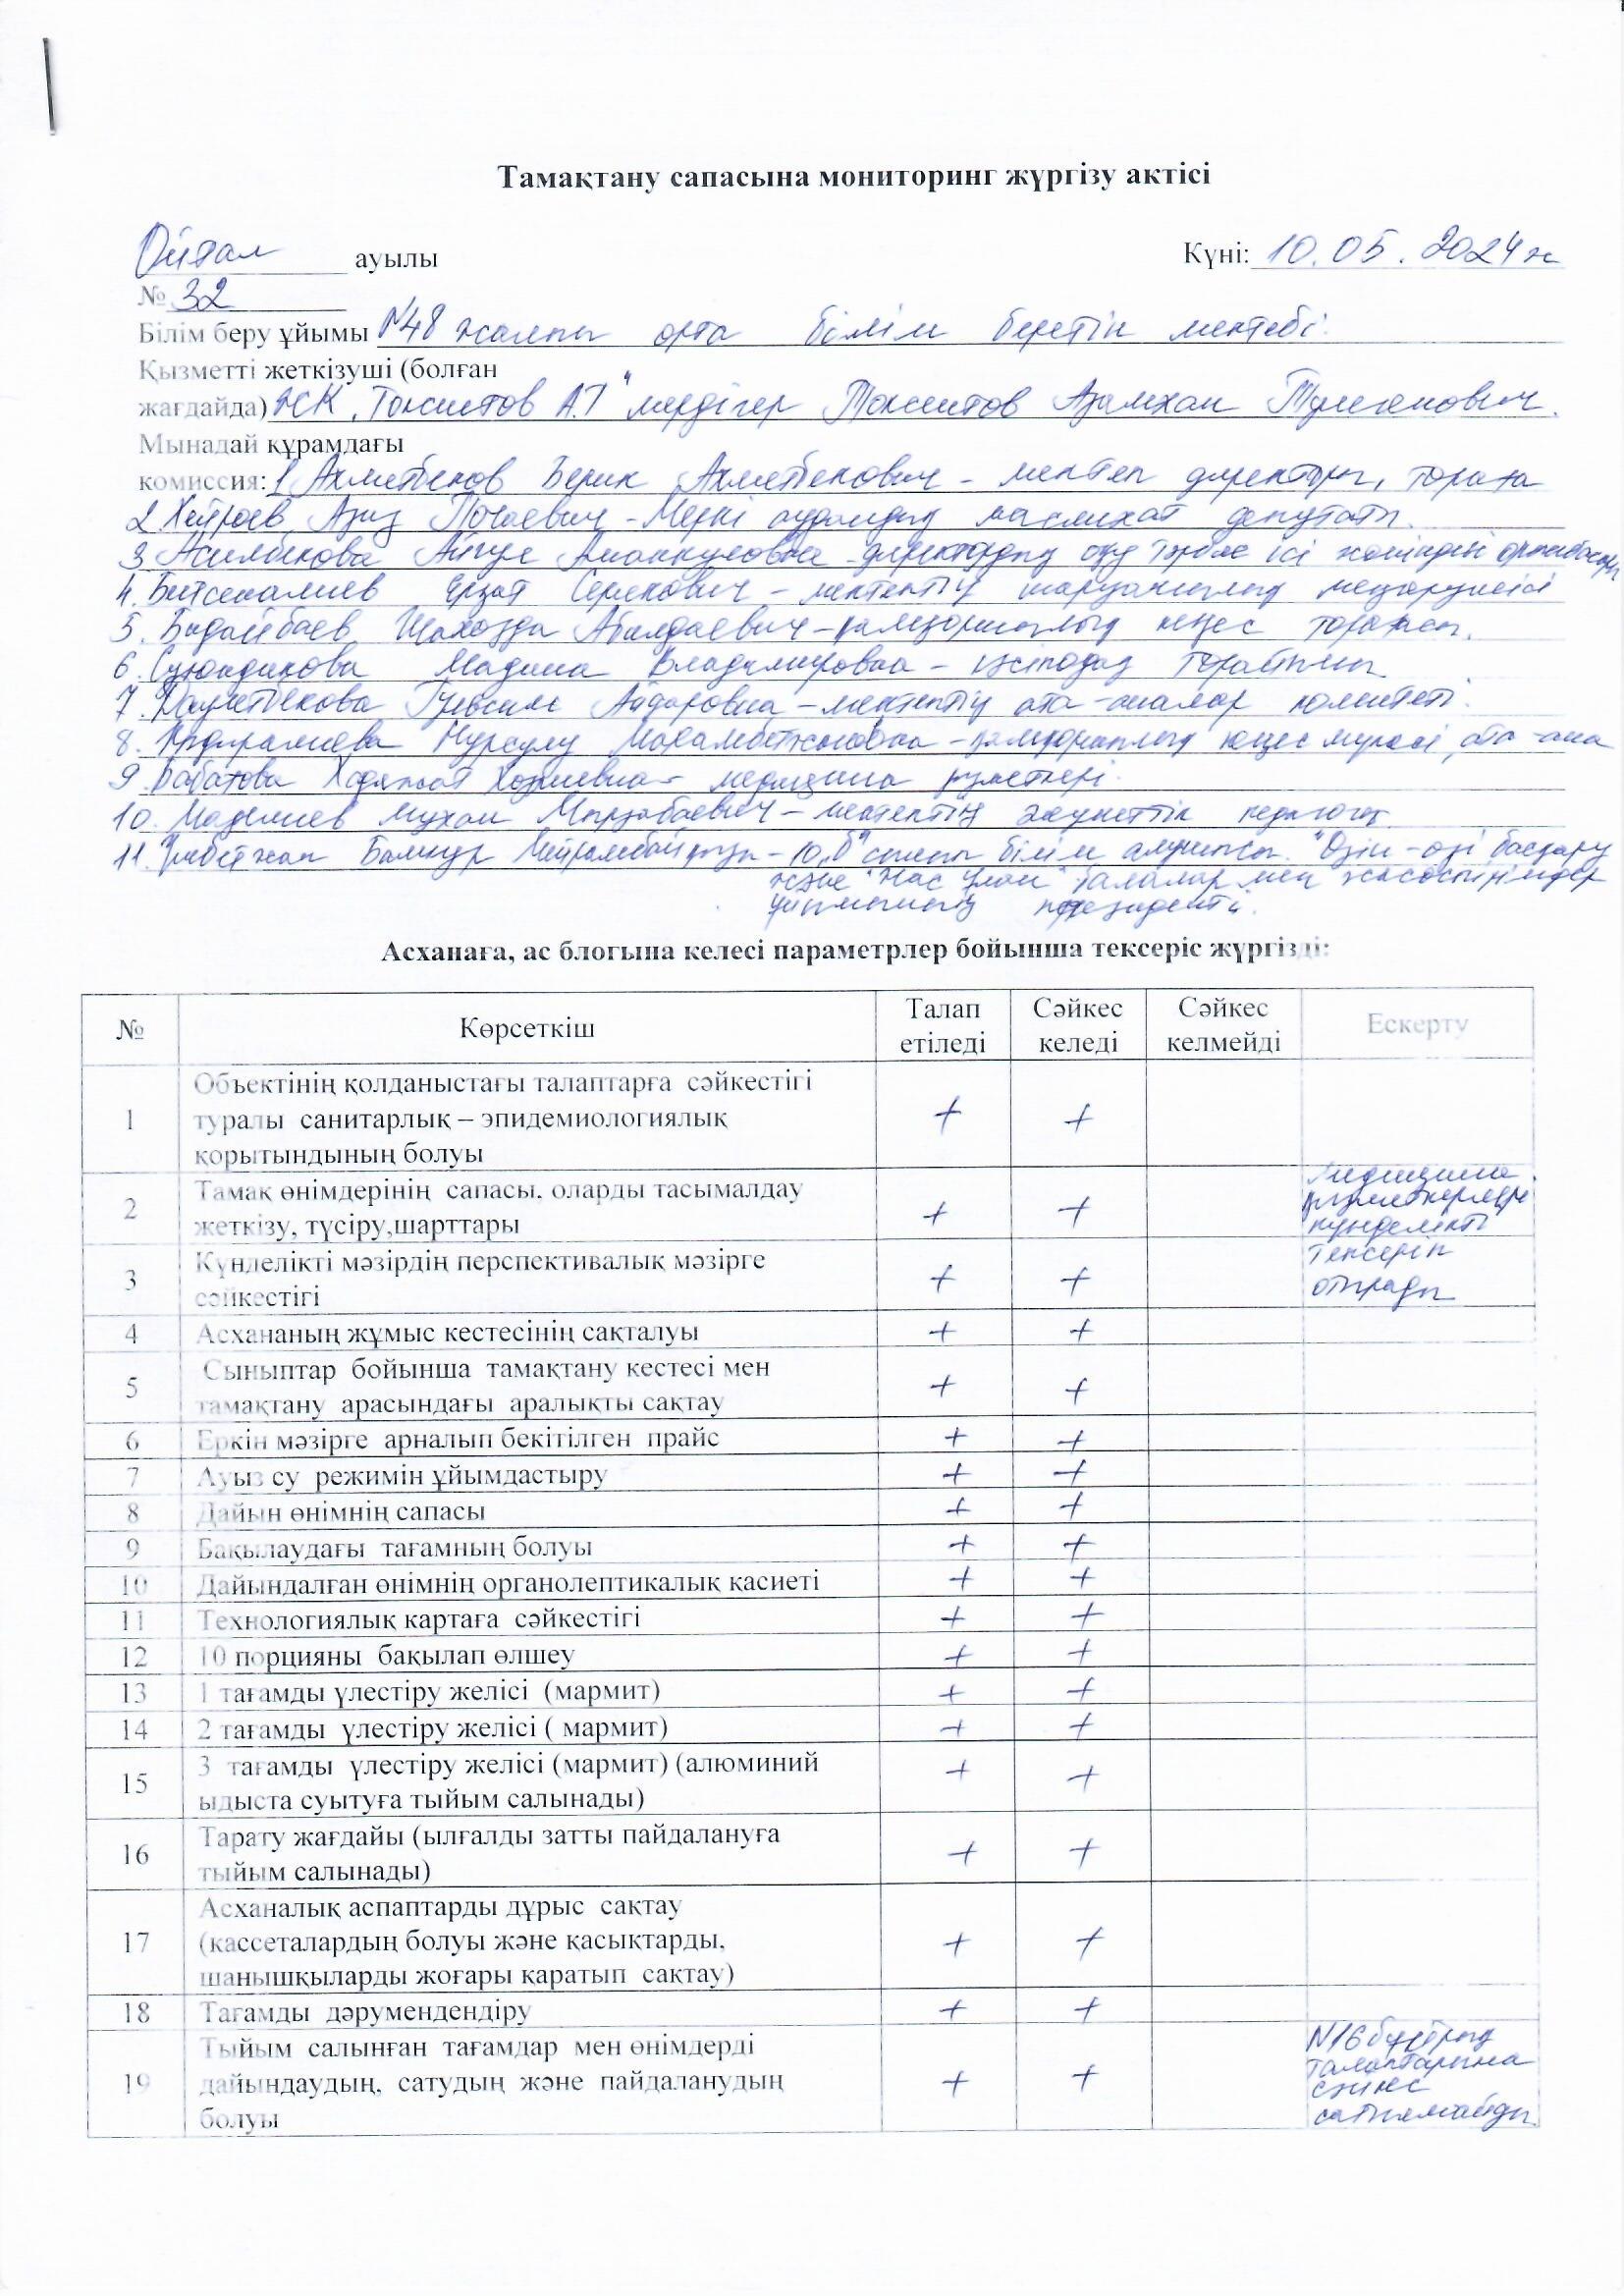 Тамақтану сапасына мониторинг жүргізу актісі
Ойтал ауылы Күні: 10.05.2024 ж
№ 32
Білім беру ұйымы №48 жалпы орта білім беретін мектебі.
Қызметті жеткізуші (болған
жағдайда) ЖК "Токситов А.Т" мердігер Токсеитов Азамхан
Мынадай құрамдағы
комиссия: 1 Ахметбеков Берик Ахметбекович - мектеп директоры, төраға
2. Азиз - Меркі аудандық маслихат депутаты.
3 Айгул - директордың оқу тәрбие ісі жөніндегі орынбасары
4. Бейсеналиев Ерзат Серекович - мектептің шаруашылық меңгерушісі
5. Бидайбаев Шахозда Абилдаевич - қамқоршылық кеңес төрағасы.
6. Мадина Владимировна - кәсіподақ төрайымы
7. Даулетбекова Айдаровна - мектептің ата-аналар комитеті.
8. Нурсулу - қамқоршылық кеңес мүшесі, ата-ана
9. Бабатова - медицина қызметкері.
10. Маделиев Мухан Мырзабаевич - мектептің әлеуметтік педагогы.
11. Үмбетжан Балнур Мейрамбайқызы - 10 "б" сынып білім алушысы. "Өзін-өзі басқару
және "Жас ұлан" балалар мен жасөспірімдер
ұйымының президенті.
Асханаға, ас блогына келесі параметрлер бойынша тексеріс жүргізді:
№ Көрсеткіш Талап етіледі Сәйкес келеді Сәйкес келмейді Ескерту
1 Объектінің қолданыстағы талаптарға сәйкестігі
туралы санитарлық – эпидемиологиялық + +
қорытындының болуы
2 Тамақ өнімдерінің сапасы, оларды тасымалдау
жеткізу, түсіру,шарттары + + Медицина қызметкерлері күнделікті
3 Күнделікті мәзірдің перспективалық мәзірге
сәйкестігі + + тексеріп отырады
4 Асхананың жұмыс кестесінің сақталуы + +
5 Сыныптар бойынша тамақтану кестесі мен
тамақтану арасындағы аралықты сақтау + +
6 Еркін мәзірге арналып бекітілген прайс + +
7 Ауыз су режимін ұйымдастыру + +
8 Дайын өнімнің сапасы + +
9 Бақылаудағы тағамның болуы + +
10 Дайындалған өнімнің органолептикалық қасиеті + +
11 Технологиялық картаға сәйкестігі + +
12 10 порцияны бақылап өлшеу + +
13 1 тағамды үлестіру желісі (мармит) + +
14 2 тағамды үлестіру желісі ( мармит) + +
15 3 тағамды үлестіру желісі (мармит) (алюминий
ыдыста суытуға тыйым салынады) + +
16 Тарату жағдайы (ылғалды затты пайдалануға
тыйым салынады) + +
17 Асханалық аспаптарды дұрыс сақтау
(кассеталардың болуы және қасықтарды, + +
шанышқыларды жоғары қаратып сақтау)
18 Тағамды дәрумендендіру + +
19 Тыйым салынған тағамдар мен өнімдерді
дайындаудың, сатудың және пайдаланудың + +
болуы
№16 бұйрық
талаптарына
сәйкес
сатылмайды.